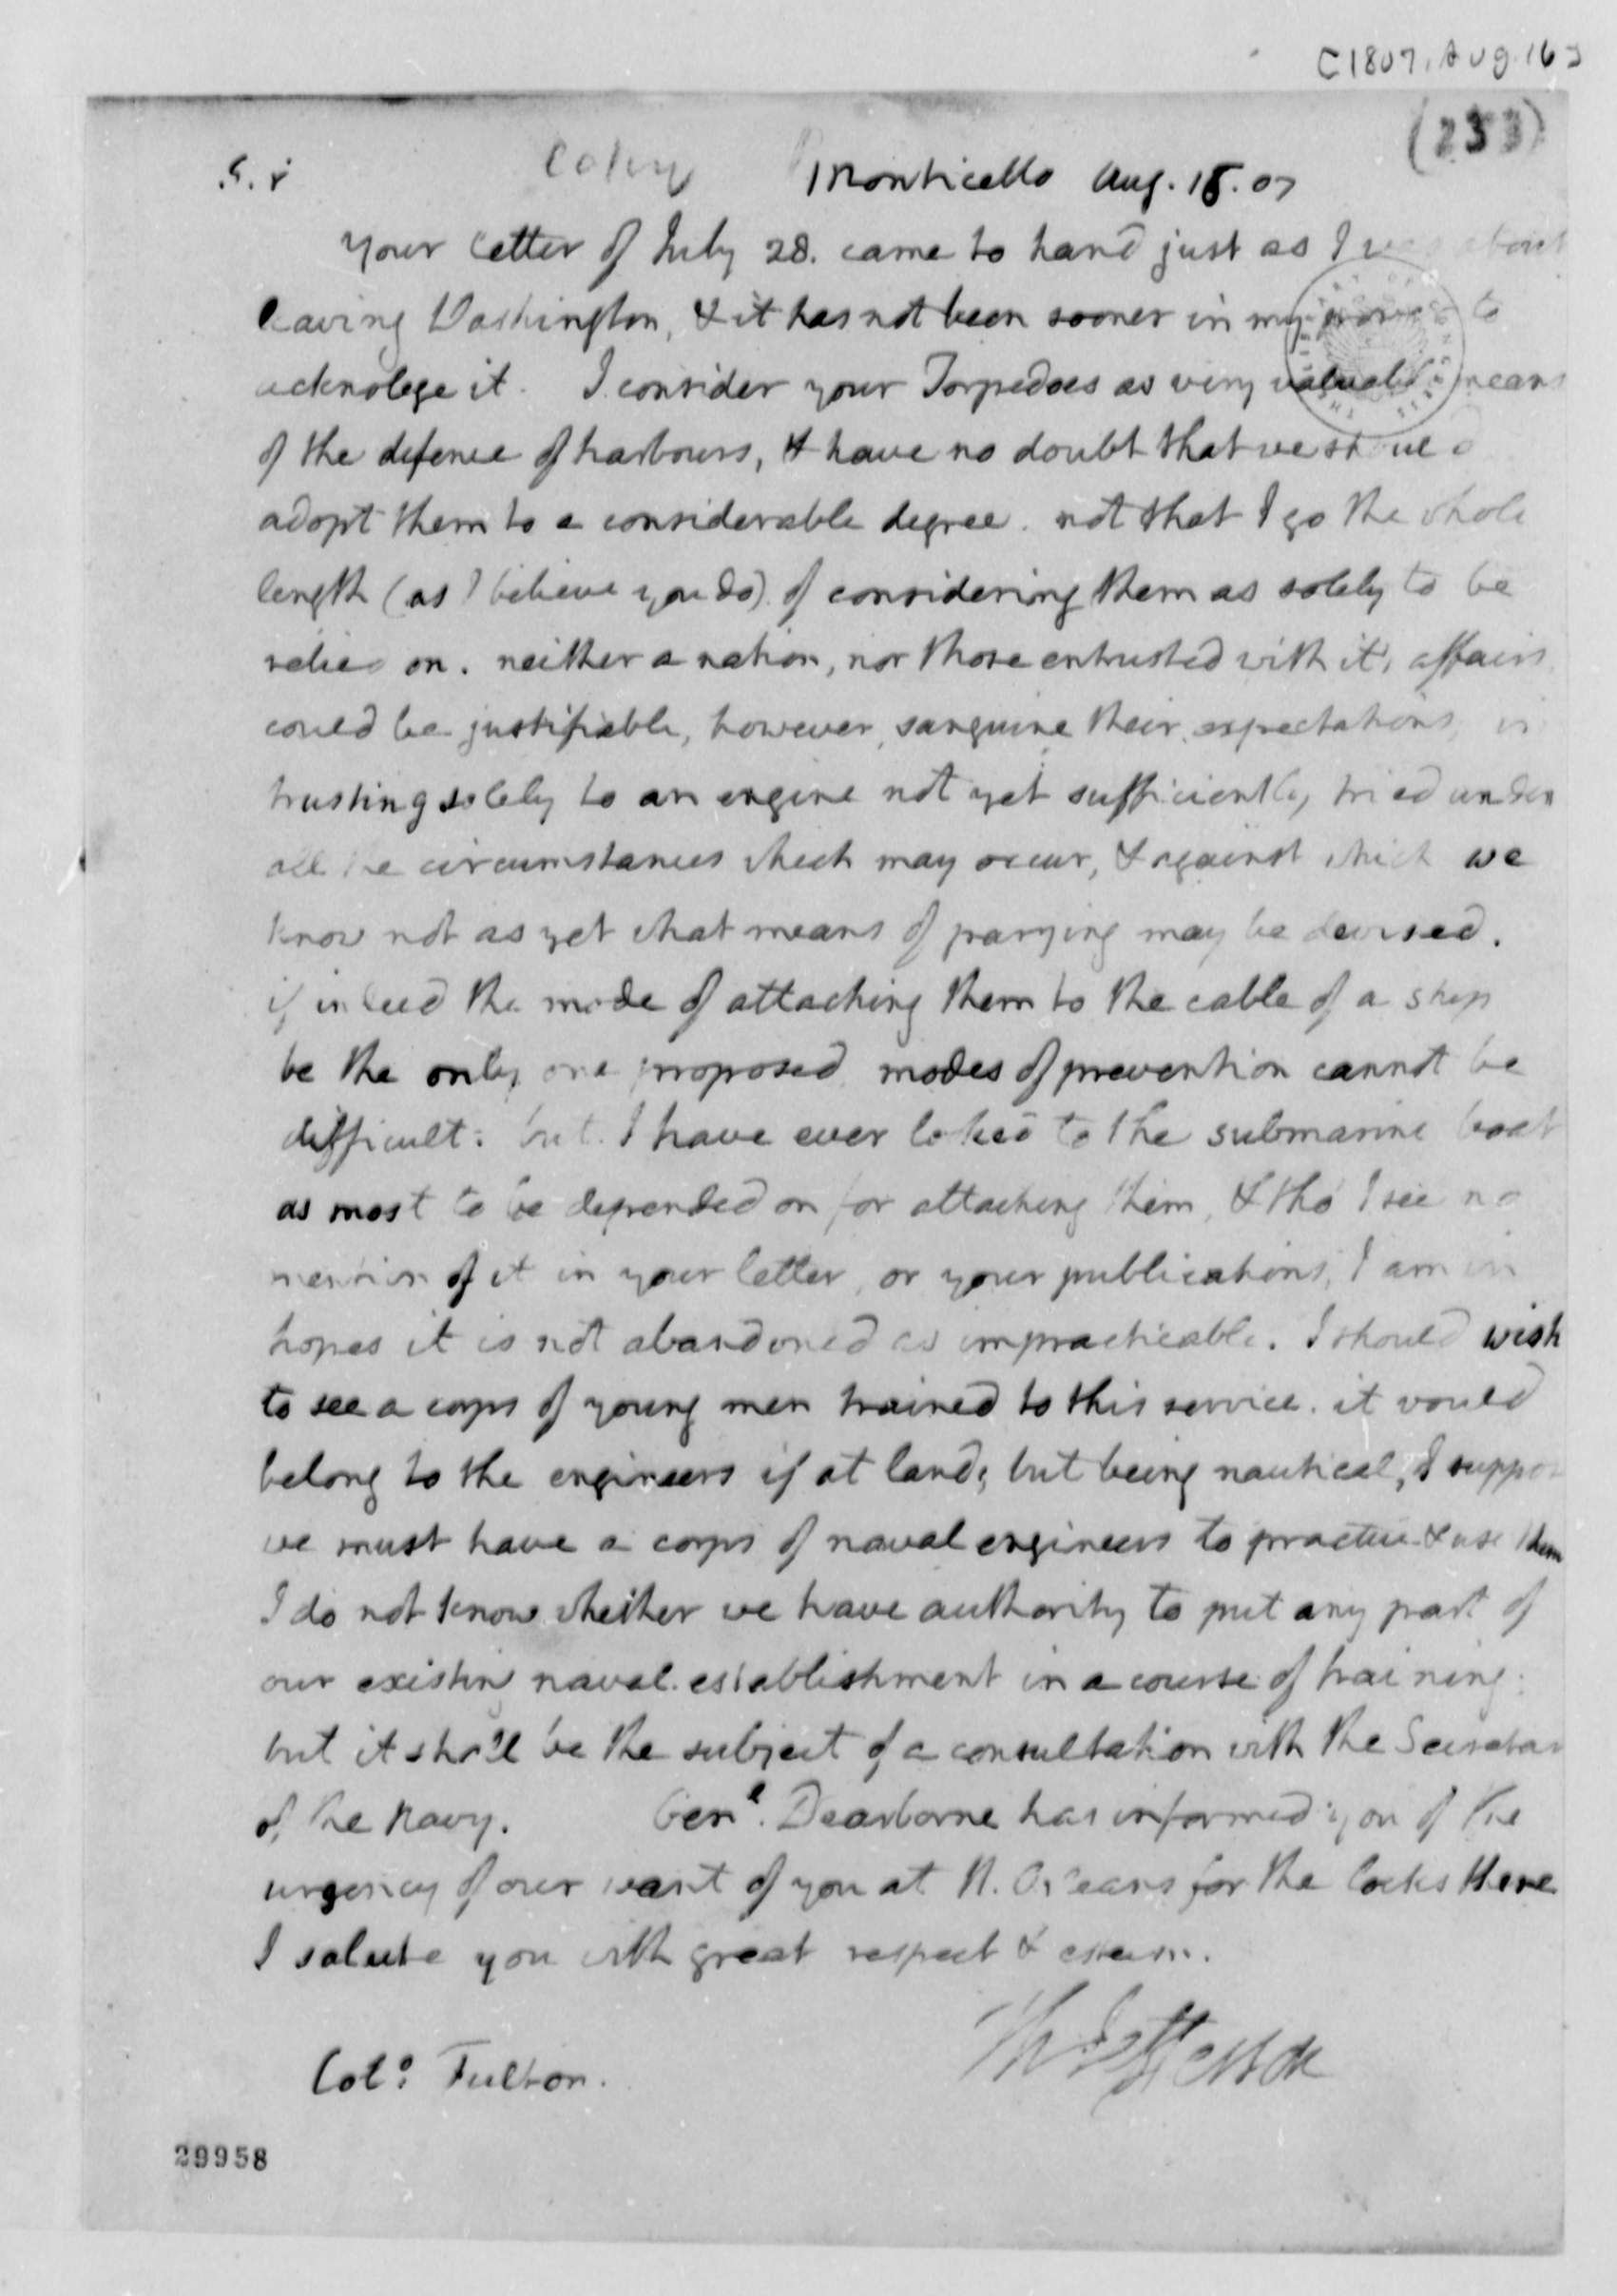 [1807, Aug. 16]
(233)
Copy
Sir Monticello Aug. 16. 07
Your letter of July 28. came to hand just as I was about
leaving Washington, & it has not been sooner in my power to
acknolege it. I consider your Torpedoes as very valuable means
of the defence of harbours, & have no doubt that we should
adopt them to a considerable degree. not that I go the whole
length (as I believe you do) of considering them as solely to be
relied on. neither a nation, nor those entrusted with it's affairs
could be justifiable, however sanguine their expectations, in
trusting solely to an engine not yet sufficiently tried under
all the circumstances which may occur, & against which we
know not as yet what means of parrying may be devised.
if indeed the mode of attaching them to the cable of a ship
be the only one proposed, modes of prevention cannot be
difficult. but I have ever looked to the submarine boat
as most to be depended on for attaching them, & tho' I see no
mention of it in your letter, or your publications, I am in
hopes it is not abandoned as impracticable. I should wish
to see a corps of young men trained to this service. it would
belong to the engineers if at land, but being nautical, I suppose
we must have a corps of naval engineers to practice & use them
I do not know whether we have authority to put any part of
our existing naval establishment in a course of training.
but it shall be the subject of a consultation with the Secretary
of the Navy. Genl. Dearborne has informed you of the
urgency of our want of you at N. Orleans for the locks there
I salute you with great respect & esteem.
Th Jefferson
Colo. Fulton.
29958